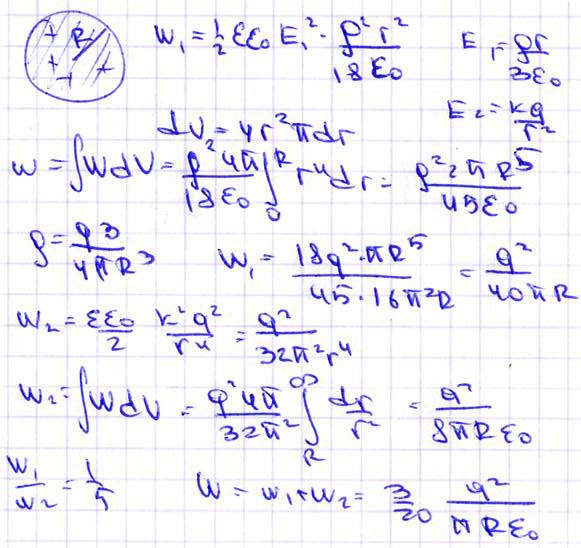 + R +
+ - +
w₁ = 1/2 εε₀ E₁² · ρ²r²/18ε₀   E₁ = ρr/3ε₀
dV = 4r²πdr   E₂ = kq/r²
w = ∫WdV = ρ²4π/18ε₀ ∫₀ᴿ r⁴dr = ρ²2πR⁵/45ε₀
ρ = q3/4πR³   W₁ = 18q²·πR⁵/45·16π²R = q²/40πR
w₂ = εε₀/2 k²q²/r⁴ = q²/32π²r⁴
w₂ = ∫WdV = q²4π/32π² ∫_R^∞ dr/r² = q²/8πRε₀
W₁/w₂ = 1/5   W = w₁+w₂ = 3/20 q²/πRε₀